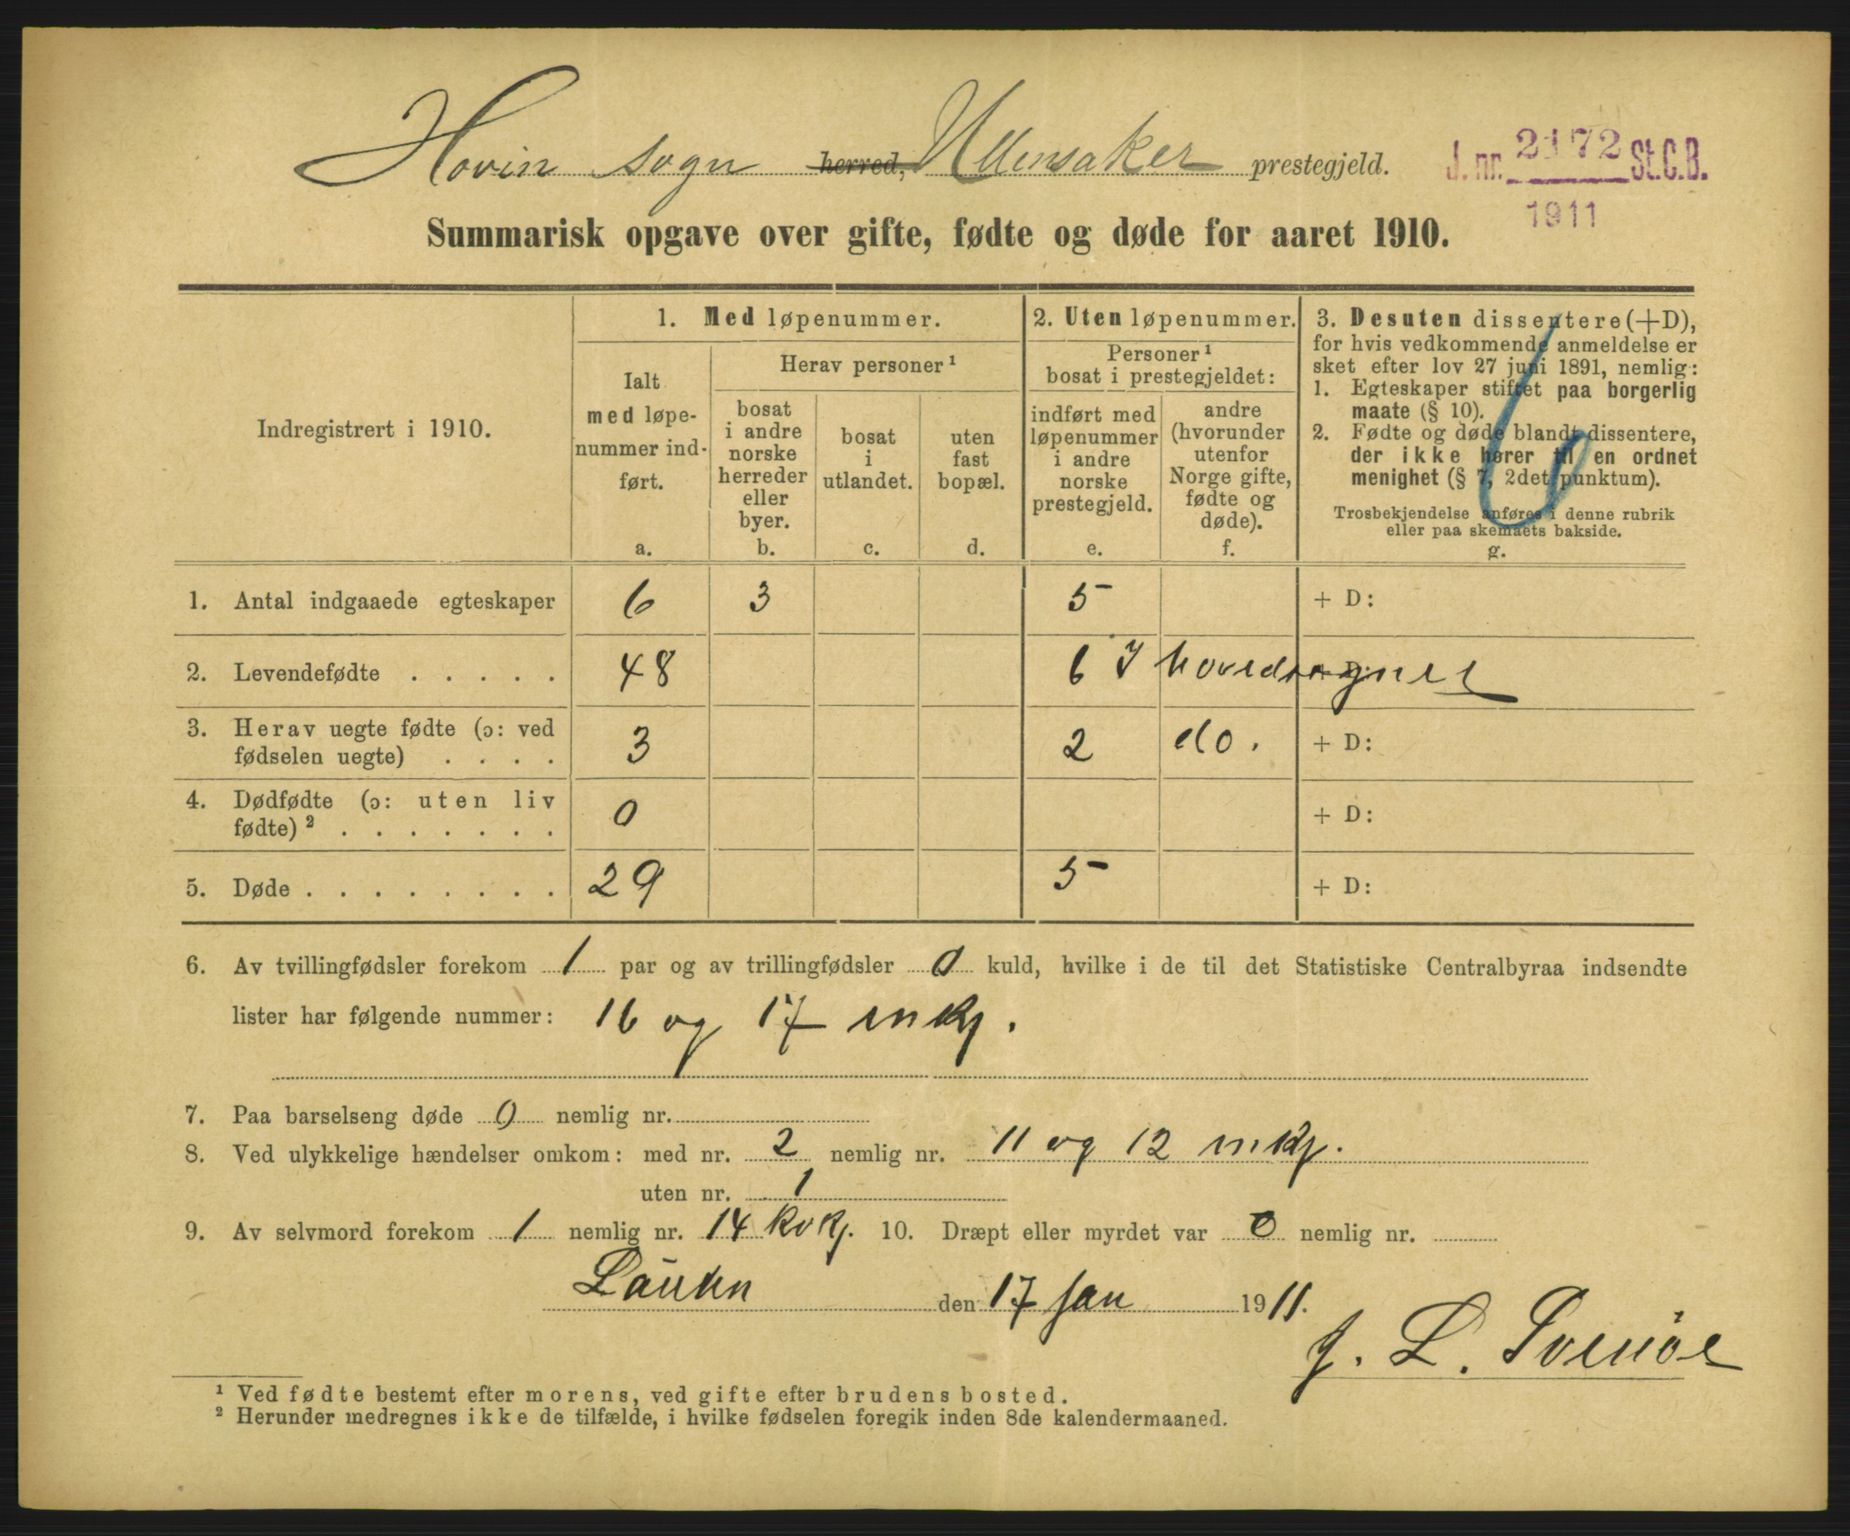 Hovin sogn herred, Ullensaker prestegjeld.
J. nr. 2172 St.C.B.
1911
Summarisk opgave over gifte, fødte og døde for aaret 1910.
Indregistrert i 1910.
1. Med løpenummer.
Ialt
med løpe-
nummer ind-
ført.
a.
Herav personer ¹
bosat
i andre
norske
herreder
eller
byer.
b.
bosat
i
utlandet.
c.
uten
fast
bopæl.
d.
2. Uten løpenummer.
Personer ¹
bosat i prestegjeldet:
indført med
løpenummer
i andre
norske
prestegjeld.
e.
andre
(hvorunder
utenfor
Norge gifte,
fødte og
døde).
f.
3. Desuten dissentere (+D),
for hvis vedkommende anmeldelse er
sket efter lov 27 juni 1891, nemlig:
1. Egteskaper stiftet paa borgerlig
maate (§ 10).
2. Fødte og døde blandt dissentere,
der ikke hører til en ordnet
menighet (§ 7, 2det punktum).
Trosbekjendelse anføres i denne rubrik
eller paa skemaets bakside.
g.
1. Antal indgaaede egteskaper 6 3 5 + D:
2. Levendefødte . . . . . 48 6 I hovedsognet
3. Herav uegte fødte (ɔ: ved
fødselen uegte) . . . . 3 2 do. + D:
4. Dødfødte (ɔ: uten liv
fødte) ² . . . . . . . 0 + D:
5. Døde . . . . . . . . 29 5 + D:
6. Av tvillingfødsler forekom 1 par og av trillingfødsler 0 kuld, hvilke i de til det Statistiske Centralbyraa indsendte
lister har følgende nummer: 16 og 17 mkj.
7. Paa barselseng døde 0 nemlig nr.
8. Ved ulykkelige hændelser omkom: med nr. 2 nemlig nr. 11 og 12 mkj.
uten nr. 1
9. Av selvmord forekom 1 nemlig nr. 14 kvkj. 10. Dræpt eller myrdet var 0 nemlig nr.
den 17 jan 1911.
J. L.
¹ Ved fødte bestemt efter morens, ved gifte efter brudens bosted.
² Herunder medregnes ikke de tilfælde, i hvilke fødselen foregik inden 8de kalendermaaned.